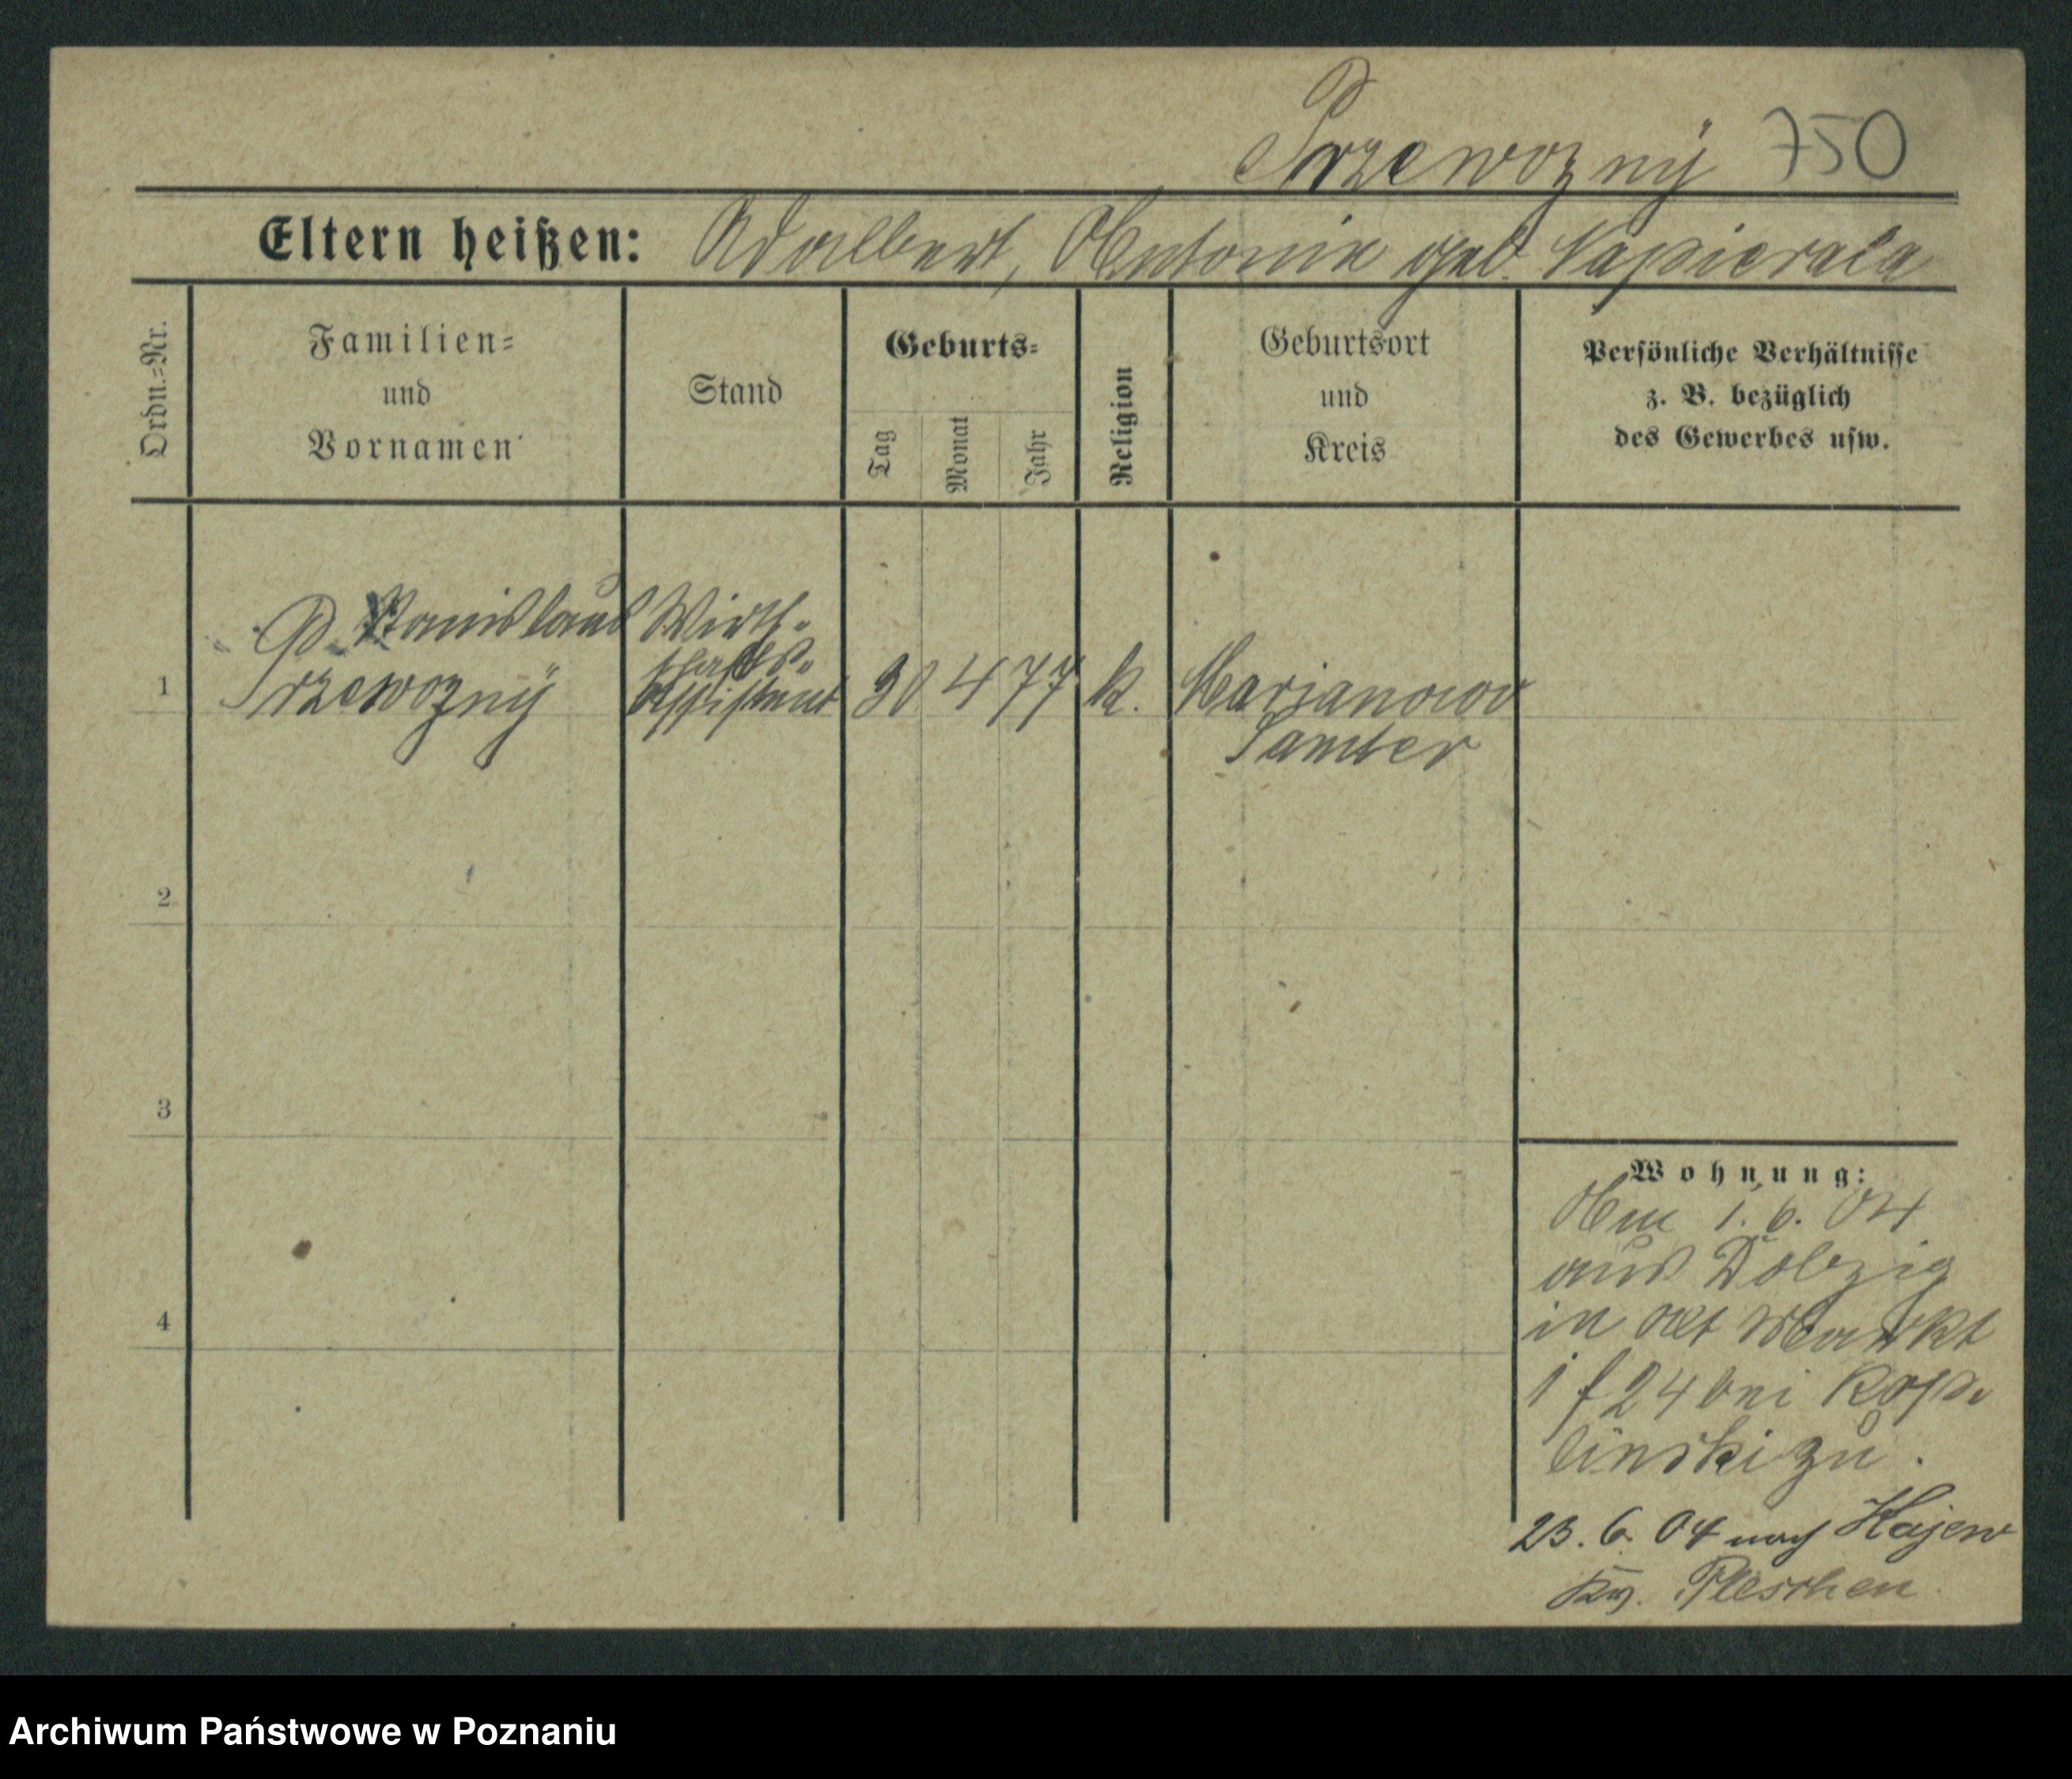 Przewozny 750
Eltern heißen: Adalbert, Antonie geb. Napierala
Ordn.=Nr.
Familien=
und
Vornamen
Stand
Geburts=
Tag
Monat
Jahr
Religion
Geburtsort
und
Kreis
Persönliche Verhältnisse
z. B. bezüglich
des Gewerbes usw.
1
Stanislaus
Przewozny
Wirth-
schafts-
Assistent
30 4 77 k. Marjanowo
Samter
2
3
4
Wohnung:
Am 1. 6. 04
aus Dolzig
in Alt Markt
24 bei
linski zu.
23. 6. 04 nach Kajew
Kr. Pleschen
Archiwum Państwowe w Poznaniu